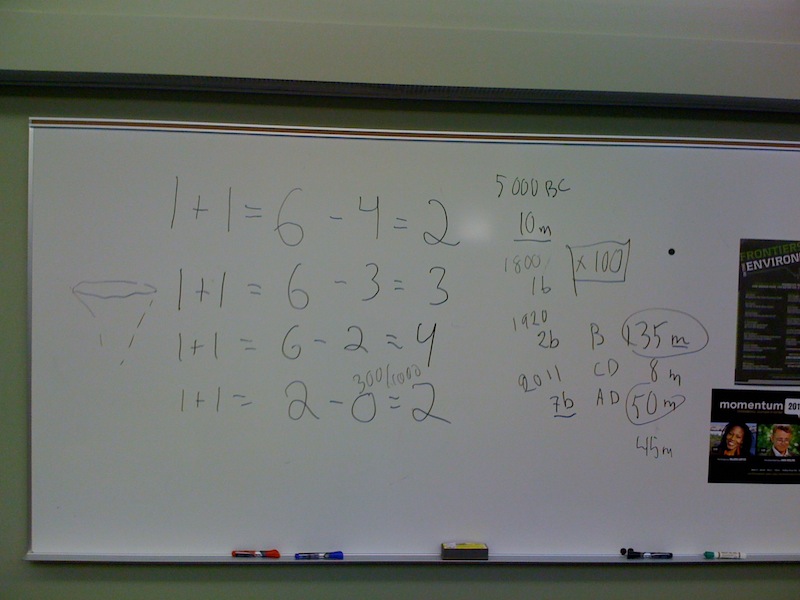 1+1=6-4=2
1+1=6-3=3
1+1=6-2=4
300/1000
1+1=2-0=2
5000BC
10m
1800
x100
1b
1920
2b
B 135m
CD 8m
2011
7b
AD 50m
45m
FRONTIERS
ENVIRON
momentum 201